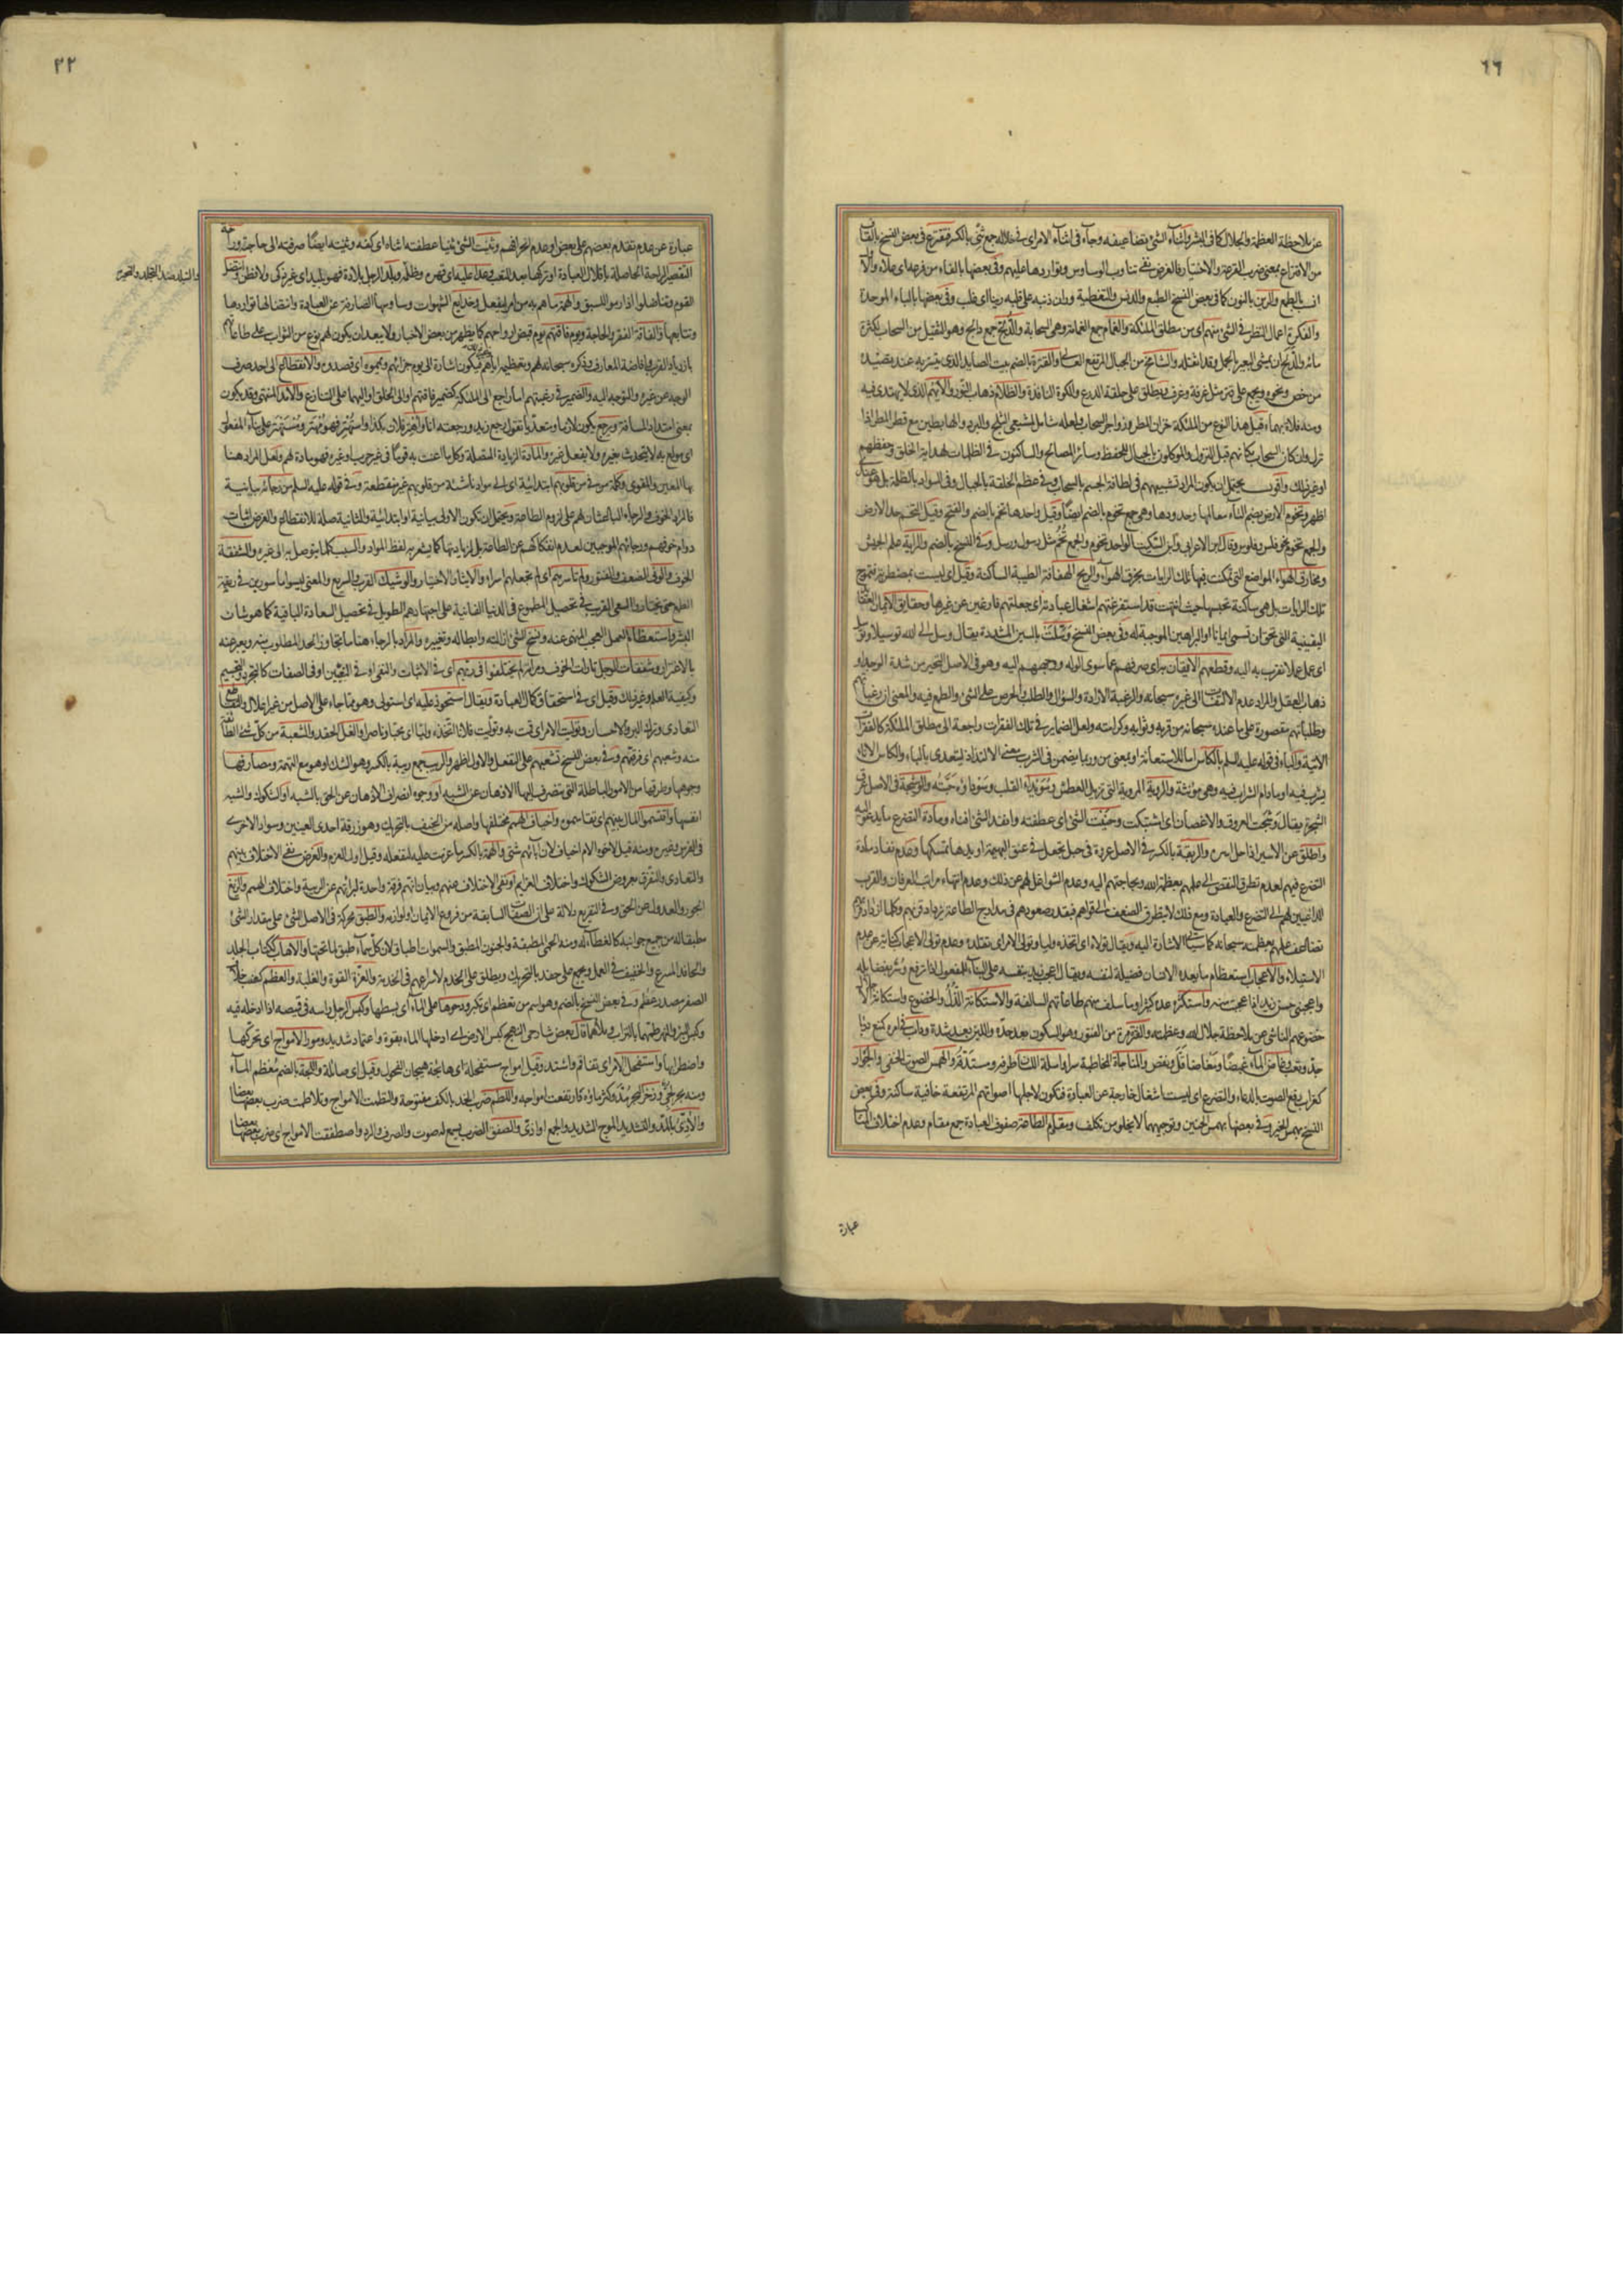 ٦٦
عن ملاحظة العظمة والجلال كما في البشر واثناء الشئ تضاعيفه وجاء في اثناء الامر اى في خلاله جمع ثنى بالكسر فتقترع في بعض النسخ بالقاف
من الاقتراع بمعنى ضرب القرعة والاختيار فالغرض نفى تناوب الوساوس وتواردها عليهم وفي بعضها بالفاء من فرعه اى علاه والاول
انسب بالطمع والرين بالنون كما في بعض النسخ الطبع والدنس والتغطية وران ذنبه على قلبه رينا اى غلب وفي بعضها بالباء الموحدة
والفكر اعمال النظر في الشئ منهم اى من مطلق الملئكة والغمام جمع الغمامة وهى السحابة والدلح جمع دالح وهو الثقيل من السحاب لكثرة
مائه والدلح ان يمشى البعير بالحمل وقد اثقله والشامخ من الجبال المرتفع العالى والقترة بالضم بيت الصايد الذى يتستر به عند تصيده
من خص ونحوه ويجمع على قتر مثل غرفة وغرف ويطلق على حلقة الدرع والكوة النافذة والظلام ذهاب النور والايهم الذى لا يهتدى فيه
ومنه فلاة يهماء قيل هذا النوع من الملئكة خزان المطر وزواجر السحاب ولعله شامل لمشيعى الثلج والبرد والهابطين مع قطر المطر اذا
نزل وان كان السحاب مكانهم قبل النزول والموكلون بالجبال للحفظ وسائر المصالح والساكنون في الظلمات لهداية الخلق وحفظهم
او غير ذلك واقول يحتمل ان يكون المراد تشبيههم في لطافة الجسم بالسحاب وفي عظم الخلقة بالجبال وفي السواد بالظلمة بل هو عندى
اظهر وتخوم الارض بضم التاء معالمها وحدودها وهى جمع تخوم بالضم ايضا وقيل واحدها تخم بالضم والفتح وقيل التخم حد الارض
والجمع تخوم نحو فلس وفلوس وقال ابن الاعرابى وابن السكيت الواحد تخوم والجمع تخم مثل رسول ورسل وفي النسخ بالضم والراية علم الجيش
ومخارق الهواء المواضع التى تمكنت فيها تلك الرايات بخرق الهواء والريح الهفافة الطيبة الساكنة وقيل اى ليست بمضطربة فتموج
تلك الرايات بل هى ساكنة تحبسها حيث انتهت قد استفرغتهم اشغال عبادته اى جعلتهم فارغين عن غيرها وحقايق الايمان العقايد
اليقينية التى تحق ان تسمى ايمانا او البراهين الموجبة له وفي بعض النسخ وسلت بالسين المشددة يقال وسل الى الله توسيلا وتوسل
اى عمل عملا تقرب به اليه وقطعهم الايقان به اى صرفهم عما سوى الوله ووجههم اليه وهو في الاصل التحير من شدة الوجد او
ذهاب العقل والمراد عدم الالتفات الى غيره سبحانه والرغبة الارادة والسؤال والطلب والحرص على الشئ والطمع فيه والمعنى ان رغباتهم
وطلباتهم مقصورة على ما عنده سبحانه من قربه وثوابه وكرامته ولعل الضماير في تلك الفقرات راجعة الى مطلق الملئكة كالفقرات
الآتية والباء في قوله عليه السلم بالكاس اما للاستعانة او بمعنى من وربما يضمن في الشرب معنى الالتذاذ ليتعدى بالباء والكاس الاناء
يشرب فيه او ما دام الشراب فيه وهى مؤنثة والروية المروية التى تزيل العطش وسويداء القلب وسوداؤه حبته والوشيجة في الاصل عرق
الشجرة يقال وشجت العروق والاغصان اى اشتبكت وحنيت الشئ اى عطفته وانفد الشئ افناه ومادة التضرع ما يدعو اليه
واطلق عن الاسير اذا حل اسره والربقة بالكسر في الاصل عروة في حبل يجعل في عنق البهيمة او يدها تمسكها وعدم نفاد مادة
التضرع فيهم لعدم تطرق النقص الى علمهم بعظمة الله وبحاجتهم اليه وعدم الشواغل لهم عن ذلك وعدم انتهاء مراتب العرفان والقرب
الداعيين لهم الى التضرع والعبادة ومع ذلك لا يتطرق الضعف الى قواهم فبقدر صعودهم في مدارج الطاعة يزداد قربهم وكلما ازداد قربهم
تضاعف علمهم بعظمته سبحانه كما سياتى الاشارة اليه ويقال تولاه اى اتخذه وليا وتولى الامر اى تقلده وعدم تولى الاعجاب كناية عن عدم
الاستيلاء والاعجاب استعظام ما يعده الانسان فضيلة لنفسه ويقال اعجب زيد بنفسه على البناء للمفعول اذا ترفع وسر بفضايله
واعجبنى حسن زيد اذا عجبت منه واستكثره عده كثيرا وما سلف منهم طاعاتهم السالفة والاستكانة الذل والخضوع واستكانة الاجلال
خضوعهم الناشى عن ملاحظة جلال الله وعظمته والفترة مرة من الفتور وهو السكون بعد حدة واللين بعد شدة وداب في امره كمنع دؤبا
جد وتعب وغاض الماء غيضا ومغاضا قل ونقص والمناجاة المخاطبة سرا واسلة اللسان طرفه ومستدقه والهمس الصوت الخفى والجؤار
كغراب رفع الصوت بالدعاء والتضرع اى ليست اشغال خارجة عن العبادة فتكون لاجلها اصواتهم المرتفعة خافية ساكنة وفي بعض
النسخ بهمس الخير وفي بعضها بهمس الحنين وتوجيههما لا يخلو من تكلف ومقاوم الطاعة صفوف العبادة جمع مقام وعدم اختلاف المناكب
عبارة
٣٢
عبارة عن عدم تقدم بعضهم على بعض او عدم انحرافهم وثنيت الشئ ثنيا عطفته اثناه اى كفه وثنيته ايضا صرفته الى حاجته وراحة
التقصير الراحة الحاصلة باقلال العبادة او تركها بعد التعب وعدا عليه اى قهره وظلمه وبلد الرجل بلادة فهو بليد اى غير ذكى ولا فطن وانتضل
القوم وتناضلوا اذا رموا للسبق والهمة ما هم به من امر ليفعل وخدايع الشهوات وساوسها الصارفة عن العبادة وانتضالها تواردها
وتتابعها والفاقة الفقر والحاجة ويوم فاقتهم يوم قبض ارواحهم كما يظهر من بعض الاخبار ولا يبعد ان يكون لهم نوع من الثواب على طاعاتهم
بازدياد القرب وافاضة المعارف وذكره سبحانه لهم وتعظيمه اياهم فيكون اشارة الى يوم جزائهم ويمموه اى قصدوه والانقطاع الى احد صرف
الوجه عن غيره والتوجه اليه والضمير في رغبتهم اما راجع الى الملئكة كضمير فاقتهم او الى الخلق او اليهما على التنازع والامد المنتهى وقد يكون
بمعنى امتداد المسافة ويرجع يكون لازما ومتعديا تقول رجع زيد ورجعته انا واهتر فلان بكذا واستهتر فهو مهتر ومستهتر على بناء المفعول
اى مولع به لا يتحدث بغيره ولا يفعل غيره والمادة الزيادة المتصلة وكل ما اعنت به قوما في غير حرب او غيره فهو مادة لهم ولعل المراد هنا
بها المعين والمقوى وكلمة من في من قلوبهم ابتدائية اى الى مواد ناشئة من قلوبهم غير منقطعة وفي قوله عليه السلم من رجائه بيانية
فالمراد الخوف والرجاء الباعثان لهم على لزوم الطاعة ويحتمل ان تكون الاولى بيانية او ابتدائية والثانية صلة للانقطاع والغرض اثبات
دوام خوفهم ورجائهم الموجبين لعدم انفكاكهم عن الطاعة بل لزيادتها كما يشعر به لفظ المواد والسبب كل ما يتوصل به الى غيره والشفقة
الخوف والونى الضعف والفتور ولم تاسرهم اى لم تجعلهم اسراء والايثار الاختيار والوشيك القريب والسريع والمعنى ليسوا مأسورين في ربقة
الطمع حتى يختاروا السعى القريب في تحصيل المطموع في الدنيا الفانية على اجتهادهم الطويل في تحصيل السعادة الباقية كما هو شان
البشر واستعظام العمل العجب المنهى عنه ونسخ الشئ ازالته وابطاله وتغييره والمراد بالرجاء هنا ما تجاوز الحد المطلوب منه ويعبر عنه
بالاغترار وشفقات الوجل تارات الخوف ومراته لم يختلفوا في ربهم اى في الاثبات والنفى او في التعيين او في الصفات كالتجرد والتجسيم
وكيفية العلم وغير ذلك وقيل اى في استحقاق كمال العبادة ويقال استحوذ عليه اى استولى وهو مما جاء على الاصل من غير اعلال والتقاطع
التعادى وترك البر والاحسان وتوليت الامر اى قمت به وتوليت فلانا اتخذته وليا اى محبا وناصرا والغل الحقد والشعبة من كل شئ الطائفة
منه وشعبهم اى فرقتهم وفي بعض النسخ تشعبتهم على التفعل والاول اظهر والريب جمع ريبة بالكسر وهو الشك او هو مع التهمة ومصارفها
وجوهها وطرقها من الامور الباطلة التى تنصرف اليها الاذهان عن الشبه او وجوه انصراف الاذهان عن الحق بالشبه او الشكوك والشبه
انفسها واقتسموا المال بينهم اى تقاسموه واخياف الهمم مختلفها واصله من الخيف بالتحريك وهو زرقة احدى العينين وسواد الاخرى
في الفرس وغيره ومنه قيل لاخوة الام اخياف لان آبائهم شتى والهمة بالكسر ما عزمت عليه لتفعله وقيل اول العزم والغرض نفى الاختلاف بينهم
والتعادى والتفرق بعروض الشكوك واختلاف العزايم او نفى الاختلاف عنهم وبيان انهم فرقة واحدة لبرائتهم عن الريبة واختلاف الهمم والزيغ
الجور والعدول عن الحق وفي التفريع دلالة على ان الصفات السابقة من فروع الايمان ولوازمه والطبق محركة في الاصل الشئ على مقدار الشئ
مطبقا له من جميع جوانبه كالغطاء له ومنه الحمى المطبقة والجنون المطبق والسموات اطباق لان كل سماء طبق لما تحتها والاهاب ككتاب الجلد
والحافد المسرع والخفيف في العمل ويجمع على حفد بالتحريك ويطلق على الخدم لاسراعهم في الخدمة والعزة القوة والغلبة والعظم كعنب خلاف
الصغر مصدر عظم وفي بعض النسخ بالضم وهو اسم من تعظم اى تكبر ودحوها على الماء اى بسطها وكبس الرجل راسه في قميصه اذا ادخله فيه
وكبس البئر والنهر طمهما بالتراب وملأهما قال بعض شارحى النهج كبس الارض اى ادخلها الماء بقوة واعتماد شديد ومور الامواج اى تحركها
واضطرابها واستفحل الامر اى تفاقم واشتد وقيل امواج مستفحلة اى هائجة هيجان الفحول وقيل اى صائلة واللجة بالضم معظم الماء
ومنه بحر لجى وزخر البحر مد وكثر ماؤه وارتفعت امواجه واللطم ضرب الخد بالكف مفتوحة والتطمت الامواج وتلاطمت ضرب بعضها بعضا
والآذى بالمد والتشديد الموج الشديد والجمع اواذى والصفق الضرب يسمع له صوت والصرف والرد واصطفقت الامواج اى ضرب بعضها بعضا